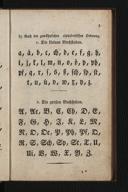 b) Nach der gewöhnlichen alphabetischen Ordnung.
1. Die kleinen Buchstaben.
a, ä, b, c, ch, d, e, f, g, h,
i, j, k, l, m, n, o, ö, p, ph,
pf, q, r, s, ß, sch, st,
t, u, ü, v, w, x, y, z.
2. Die großen Buchstaben.
A, Ae, B, C, Ch, D, E,
F, G, H, I, J, K, L, M,
N, O, Oe, P, Ph, Pf, Q,
R, S, Sch, Sp, St, T, U,
Ue, V, W, X, Y, Z.